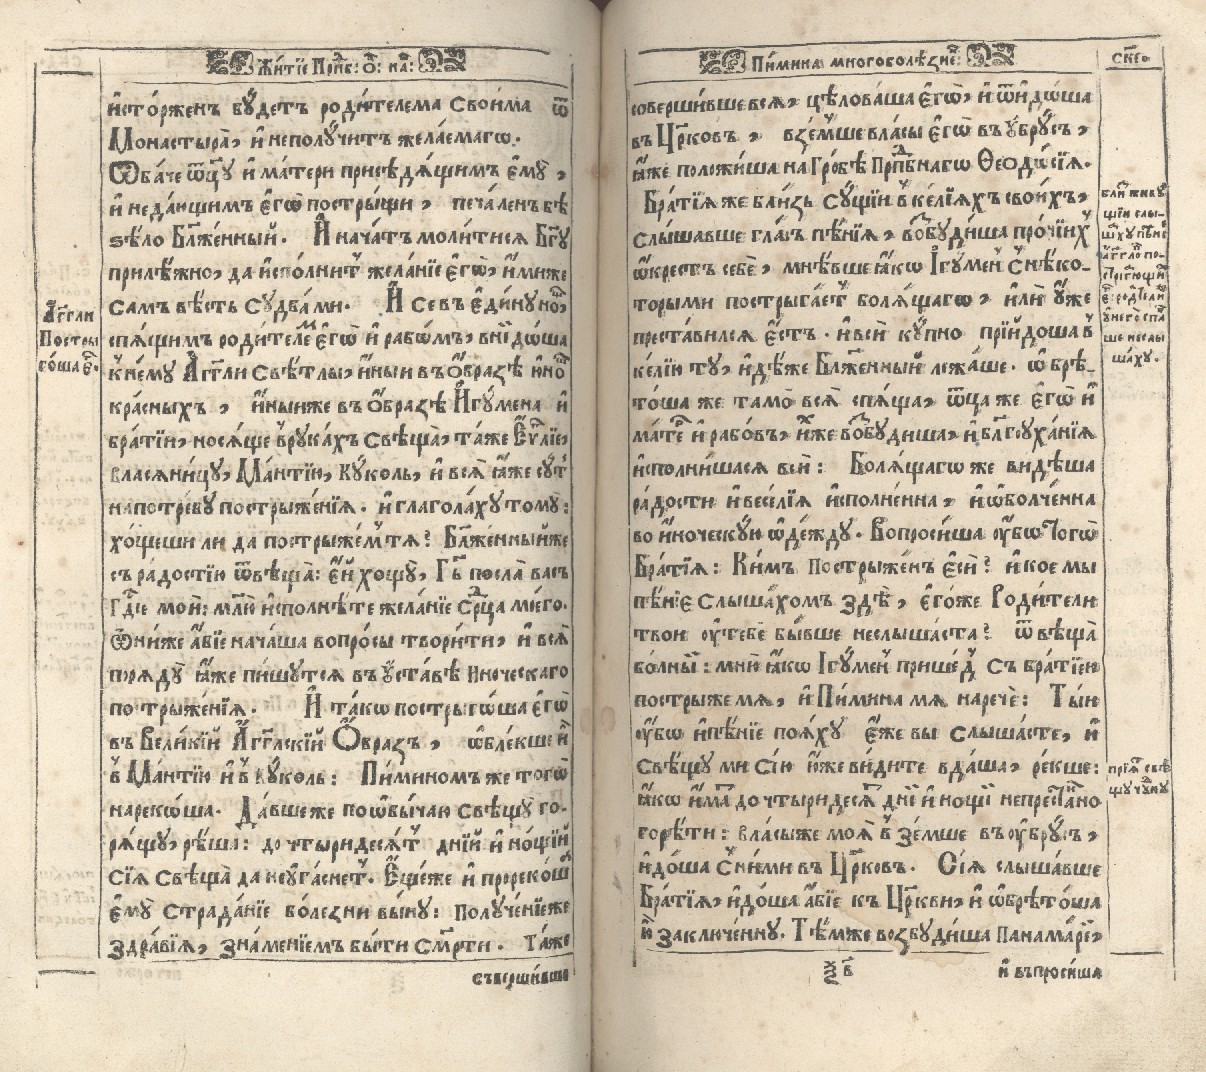 Житїе Прпⷣб: Ѻ҃: на́:
и҆сто́рженъ бꙋ́детъ роди́телема свои́ма ѿ
Монастырѧ̀, и҆ неполꙋ́читъ жела́емагѡ.
Ѻба́че ѿцꙋ̀ и҆ ма́тери присѣдѧ́щимъ є҆мꙋ̀,
и҆ неда́ющимъ є҆гѡ̀ пострыщѝ, печа́ленъ бѣ̀
ѕѣ́ло Бл҃же́нный. И҆ нача́тъ моли́тисѧ Бг҃ꙋ
прилѣ́жно, да и҆спо́лнитъ жела́нїе є҆гѡ̀, и҆́миже
са́мъ вѣ́сть сꙋдба́ми. И҆ се въ є҆ди́нꙋ но́щь
спѧ́щимъ роди́телемъ є҆гѡ̀ и҆ рабѡ́мъ, вни́дѡша
к̾ немꙋ̀ А҆́гг҃ли свѣ́тлы, и҆́ныи въ ѻ҆́бразѣ ю҆но
кра́сныхъ, и҆́ныиже въ ѻ҆́бразѣ И҆гꙋ́мена и҆
бра́тїи, носѧ́ще в̾ рꙋка́хъ свѣщѧ̀, та́же Є҆ѵⷢ҇лїе,
власѧни́цꙋ, Ма́нтїю, Кꙋ́коль, и҆ всѧ̀ ꙗ҆́же сꙋ́ть
на потре́бꙋ постриже́нїѧ. и҆ глаго́лахꙋ томꙋ̀:
хо́щеши ли да постриже́мъ тѧ? Бл҃же́нный же
съ ра́достїю ѿвѣща̀: є҆́й хощꙋ̀, Гд҇ь посла̀ ва́съ
Гд҇їе мой: молю̀ и҆спо́лнѣте жела́нїе се́рⷣца моегѡ̀.
Ѻни́же а҆́бїе нача́ша вопро́сы твори́ти, и҆ всѧ̀
порѧ́дꙋ ꙗ҆́же пи́шꙋтсѧ въ ᲂу҆ста́вѣ И҆но́ческаго
постриже́нїѧ. И҆ та́кѡ постриго́ша є҆гѡ̀
въ Вели́кїй А҆́гг҃лскїй Ѻ҆́бразъ, ѡ҆бле́кше и҆̀
в̾ Ма́нтїю и҆ в̾ кꙋ́коль: Пи́миномъ же тогѡ̀
нареко́ша. Да́вше же по ѡ҆бы́чаю свѣщꙋ̀ го-
рѧ́щꙋ, рѣ́ша: до четыридесѧ́тъ дні́й и҆ но́щїй
сїѧ̀ свѣща̀ да не ᲂу҆га́снетъ. Є҆ще́же и҆ пророко́ша
є҆мꙋ̀ страда́нїе болѣ́зни вы́нꙋ: полꙋче́нїе же
здра́вїѧ, зна́менїемъ бы́ти сме́рти. Та́же
съверши́вше
А҆́гг҃ли
Постры
го́ша є҆го̀.
Пи́мина многоболѣ́зне:
соверши́вше всѧ̀, цѣлова́ша є҆гѡ̀, и҆ ѿидо́ша
въ Цр҃ковъ, взе́мше власы̀ є҆гѡ̀ въ ᲂу҆брꙋ́съ,
ꙗ҆́же положи́ша на Гро́бѣ Прпⷣбнагѡ Ѳеодо́сїѧ.
Бра́тїѧ же бли́зъ сꙋ́щїи в̾ ке́лїѧхъ свои́хъ,
слы́шавше гла́съ пѣ́нїѧ, возбꙋди́ша про́чїихъ
ѡ҆́крестъ себѐ, мнѣ́вше ꙗ҆́кѡ І҆гꙋ́менъ с̾ нѣ́ко-
торыми пострыга́етъ болѧ́щагѡ, и҆лѝ ᲂу҆же
преста́вилсѧ є҆́сть. и҆ всѝ кꙋ́пно прїидо́ша в̾
ке́лїю тꙋ̀, и҆дѣ́же Бл҃же́нный лежа́ше. ѡ҆брѣ-
то́ша же та́мо всѧ̀ спѧ́ща, ѿца́ же є҆гѡ̀ и҆
ма́терь и҆ рабо́въ, и҆́хже возбꙋди́ша, и҆ благоꙋха́нїѧ
и҆спо́лнишасѧ всѝ: Болѧ́щагѡ же ви́дѣша
ра́дости и҆ весе́лїѧ и҆спо́лненна, и҆ ѡ҆болче́нна
во и҆но́ческꙋю ѡ҆де́ждꙋ. Вопроси́ша ᲂу҆́бѡ того̀
Бра́тїѧ: Ки́мъ пострыже́нъ є҆сѝ? и҆ кое мы
пѣ́нїе слы́шахомъ здѣ̀, є҆го́же Роди́тели
твои ᲂу҆ тебѐ бы́вше неслы́шаста? ѿвѣща̀
болны́й: мню̀ ꙗ҆́кѡ І҆гꙋ́менъ прише́дъ съ бра́тїею
постры́же мѧ, и҆ Пи́мина мѧ наречѐ: Ты́и
ᲂу҆́бѡ и҆ пѣ́нїе поѧ́хꙋ є҆́же вы слы́шасте, и҆
свѣщꙋ̀ ми сїю̀ ю҆́же ви́дите вда́ша, ре́кше:
ꙗ҆́кѡ и҆́мать до чтыридесѧ́тъ дні́й и҆ но́щїй непреста́нно
горѣ́ти: власы́же моѧ̀ в̾зе́мше въ ᲂу҆брꙋ́съ,
и҆до́ша с̾ ни́ми въ Цр҃ковъ. Сїѧ̀ слы́шавше
Бра́тїѧ, и҆до́ша а҆́бїе къ Цр҃кви, и҆ ѡ҆брѣто́ша
ю҆̀ заключе́ннꙋ. Тѣ́мже возбꙋди́ша Панамарѐ,
ѯ҃в
и҆ въпроси́ша
Бли́зъ живꙋ́
щїи слы́-
шахꙋ пѣ́нїе
а҆́гг҃лѡ по-
стрига́ющихъ
є҆го̀, роди́тели
ᲂу҆ него̀ спѧ́
ще не слы́
шахꙋ.
прїѧ́тъ свѣ
щꙋ чꙋ́днꙋ